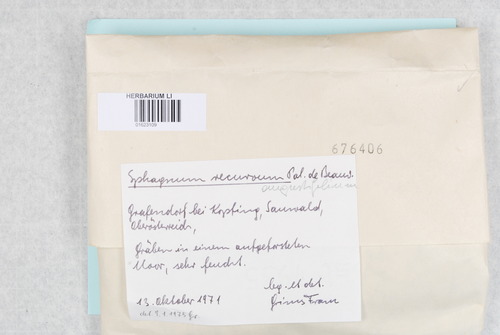 HERBARIUM LI
676406
Sphagnum recurvum Pal. de Beauv.
angustifolium
Grafendorf bei Kopfing, Sauwald,
Oberösterreich,
Gräben in einem aufgeforsteten
Moor, sehr feucht.
Leg. et det.
13. Oktober 1971 Grims Franz